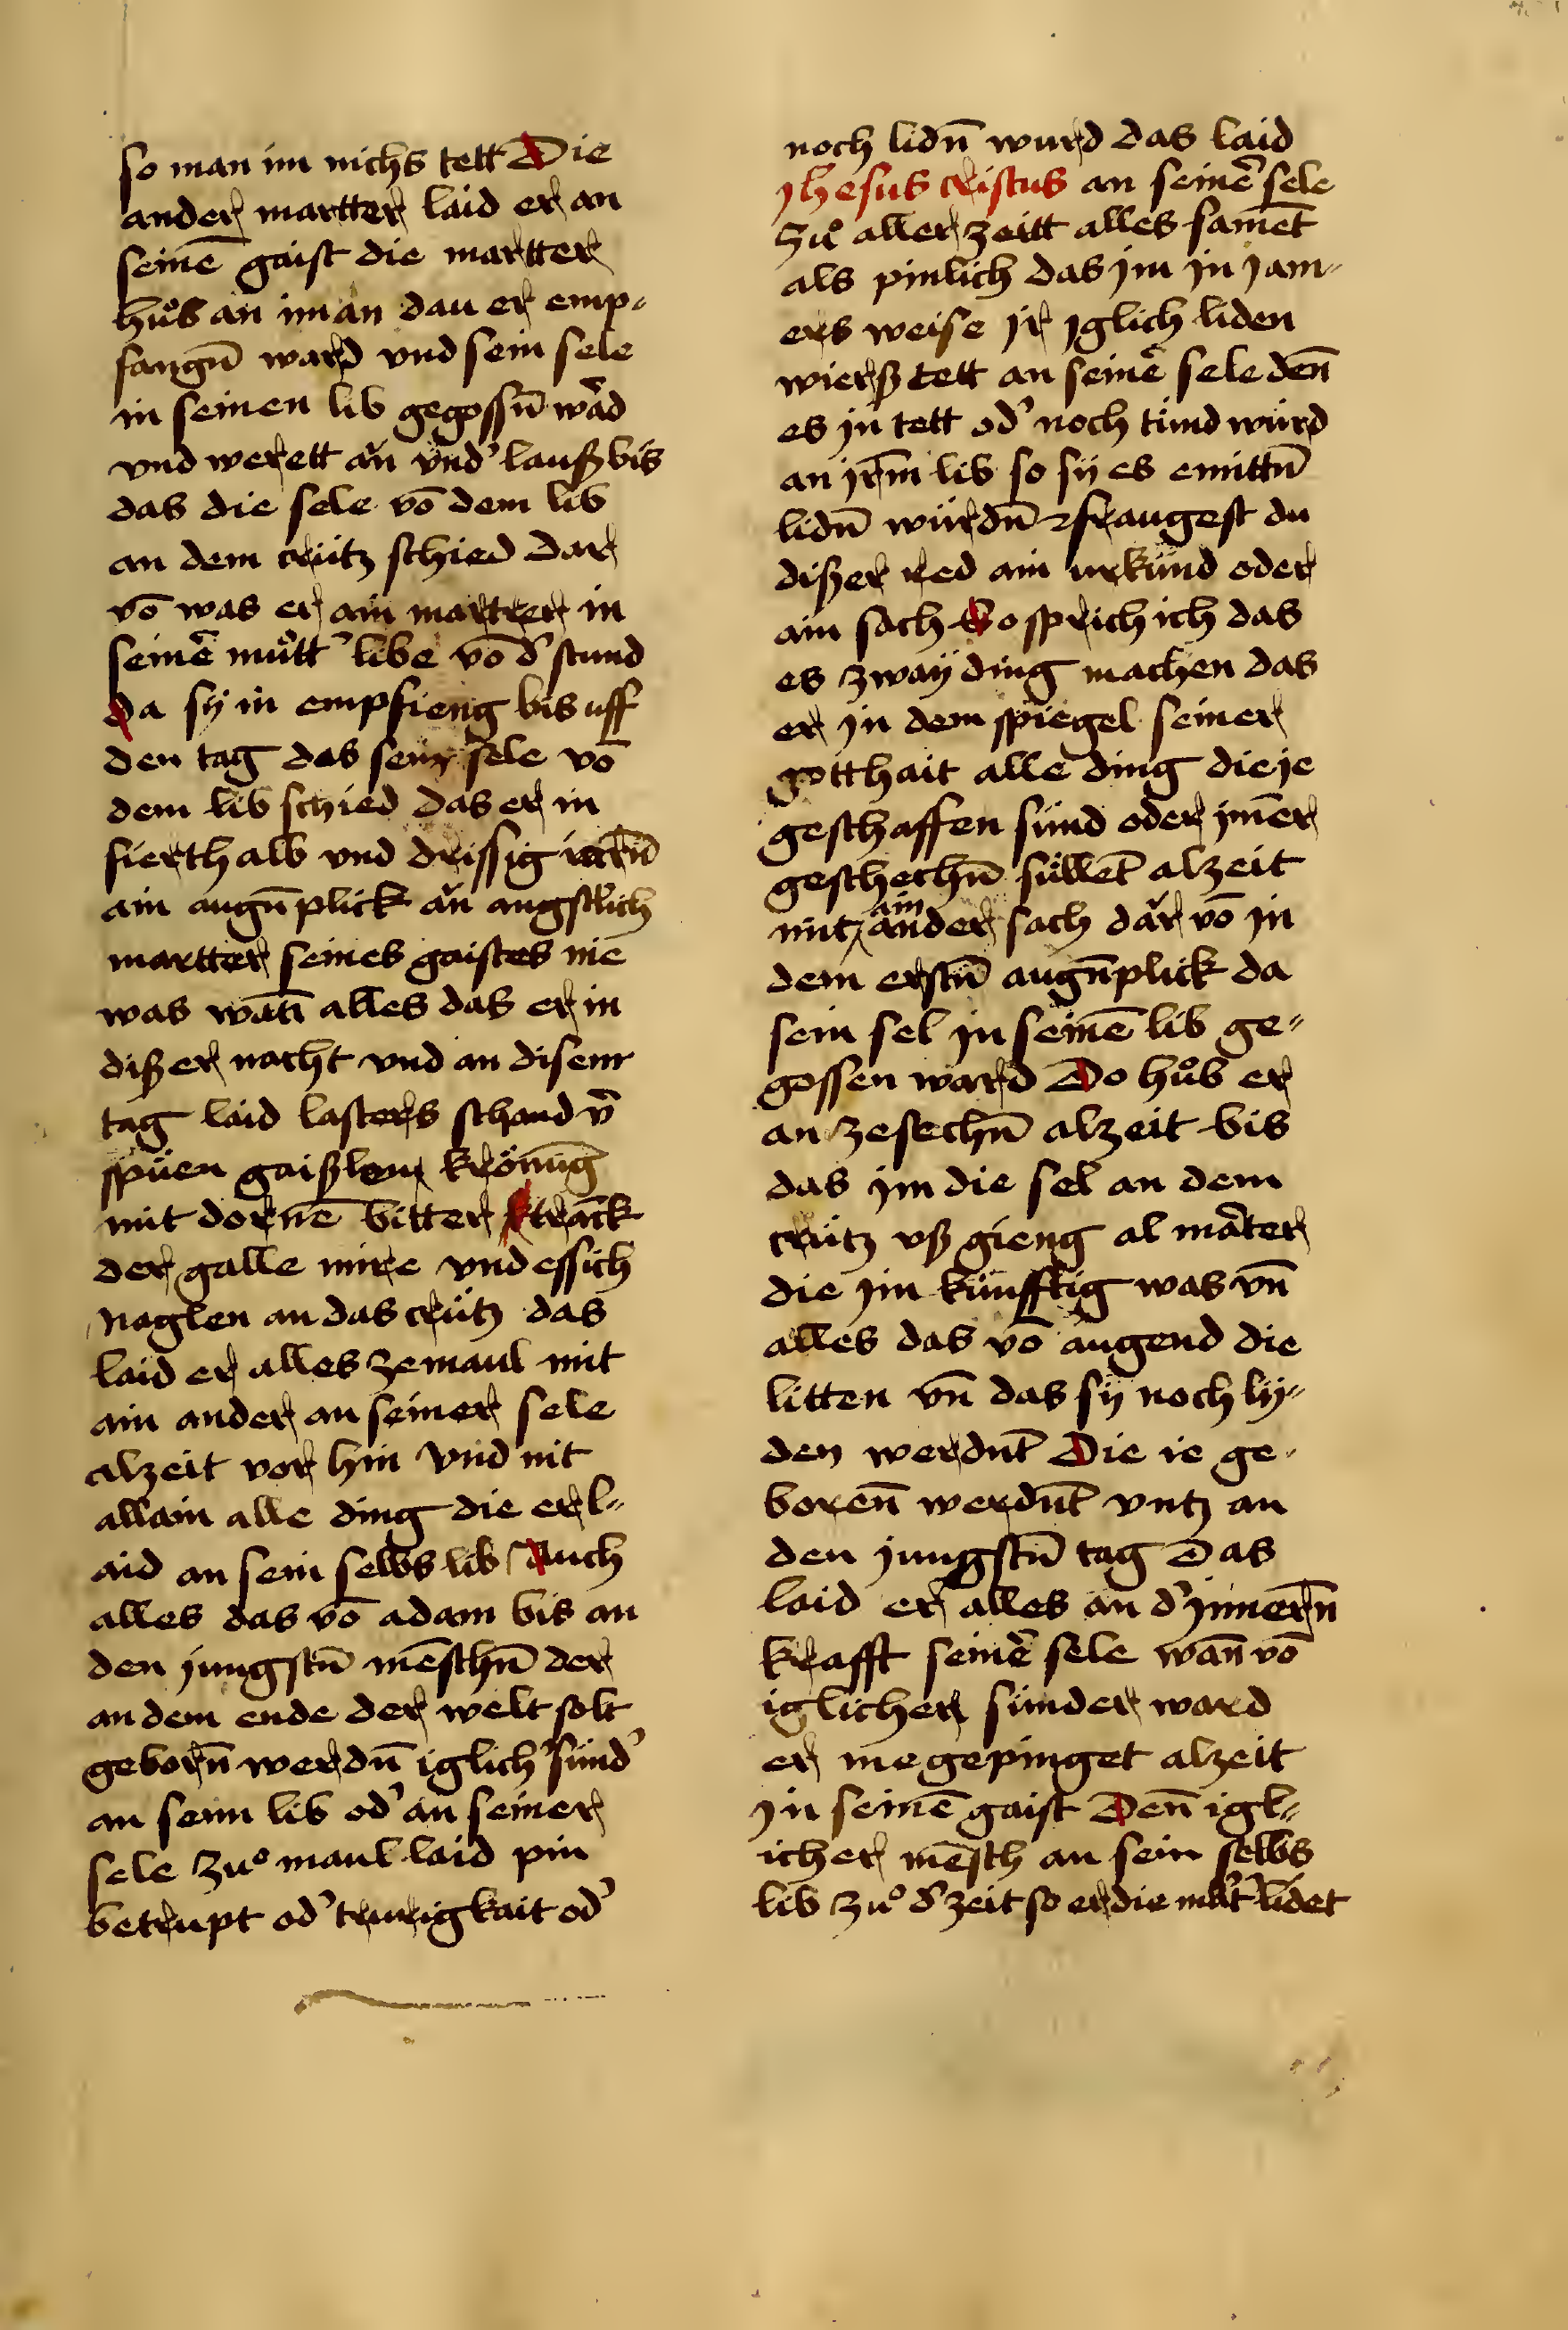 so man im nichs tett Die
ander martter laid er an
seinē gaist die martter
hůb an im an dau er emp-
fangn̄ ward vnd sein sele
in seinen lib gegossn̄ wa᷑d
vnd werett ăn vnd᾽ lauß bis
das die sele vō dem lib
an dem crütz schied Dar
vō was er ain martrer in
seine᷑ můtt᾽ libe vō d᾽ stund
Da sÿ in empfieng bis uff
den tag das seinr sele vō
dem lib schied das er in
fierthalb vnd drissig iarn̄
ain augn̄plick ăn angstlich
martter seines gaistes nie
was wān alles das er in
dißer nacht vnd an disem
tag laid lasters schand vn̄
spüen gaißlen krönūg
mit dornē bitter trānck
der galle mire vnd essich
Naglen an das crütz das
laid er alles zemaul mit
ain ander an seiner sele
alzeit vor hin Vnd nit
allain alle ding die er l-
aid an sein selbs lib Auch
alles das vō adam bis an
den jungstn̄ mēschn̄ der
an dem ende der welt solt
geborn̄ werdn̄ iglich᾽ sünd᾽
an seim lib od᾽ an seiner
sele zuͦ maul laid pin
betrupt od᾽ trurigkait od᾽
noch lidn̄ wurd das laid
jhesus cristus an seine᷑ sele
Zuͦ aller zeitt alles samēt
als pinlich das jm in jam-
ers weise jr jglich liden
wierß tett an seine᷑ sele den̄
es jn tett od᾽ noch tūnd würd
an jrm̄ lib so sÿ es emittn̄
lidn̄ würdn̄ fraugest du
dißer red ain urkünd oder
ain sach So sprich ich das
es zwaÿ ding machen das
er jn dem spiegel seiner
gotthait alle ding die je
geschaffen sünd oder jmēr
geschechn̄ süllēt alzeit
mit ain ander sach dăr vō in
dem erstn̄ augn̄plick da
sein sel jn seinē lib ge-
gossen ward Do hůb er
an ze sechn̄ alzeit bis
das jm die sel an dem
crütz vß gieng al ma᷑ter
die jm künfftig was vn̄
alles das vō augend die
litten vn̄ das sÿ noch lÿ-
den werdnt̄ Die ie ge-
boren̄ werdnt̄ vntz an
den jungstn̄ tag Das
laid er alles an d᾽ jnnern̄
krafft seine᷑ sele wan̄ vō
iglicher sünder ward
er me gepinget alzeit
jn seinē gaist Den̄ igl-
icher mēsch an sein selbs
lib zuͦ d᾽ zeit so er die ma᷑t᾽ lidet